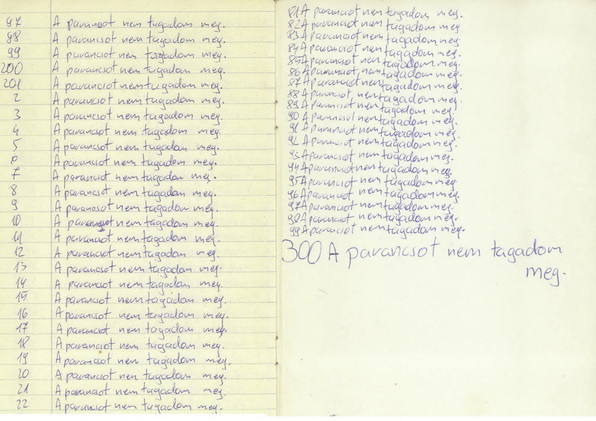 97 A parancsot nem tagadom meg.
98 A parancsot nem tagadom meg.
99 A parancsot nem tagadom meg.
200 A parancsot nem tagadom meg.
201 A parancsot nem tagadom meg.
2 A parancsot nem tagadom meg.
3 A parancsot nem tagadom meg.
4 A parancsot nem tagadom meg.
5 A parancsot nem tagadom meg.
6 A parancsot nem tagadom meg.
7 A parancsot nem tagadom meg.
8 A parancsot nem tagadom meg.
9 A parancsot nem tagadom meg.
10 A parancsot nem tagadom meg.
11 A parancsot nem tagadom meg.
12 A parancsot nem tagadom meg.
13 A parancsot nem tagadom meg.
14 A parancsot nem tagadom meg.
15 A parancsot nem tagadom meg.
16 A parancsot nem tagadom meg.
17 A parancsot nem tagadom meg.
18 A parancsot nem tagadom meg.
19 A parancsot nem tagadom meg.
20 A parancsot nem tagadom meg.
21 A parancsot nem tagadom meg.
22 A parancsot nem tagadom meg.
81 A parancsot nem tagadom meg.
82 A parancsot nem tagadom meg.
83 A parancsot nem tagadom meg.
84 A parancsot nem tagadom meg.
85 A parancsot nem tagadom meg.
86 A parancsot nem tagadom meg.
87 A parancsot nem tagadom meg.
88 A parancsot nem tagadom meg.
89 A parancsot nem tagadom meg.
90 A parancsot nem tagadom meg.
91 A parancsot nem tagadom meg.
92 A parancsot nem tagadom meg.
93 A parancsot nem tagadom meg.
94 A parancsot nem tagadom meg.
95 A parancsot nem tagadom meg.
96 A parancsot nem tagadom meg.
97 A parancsot nem tagadom meg.
98 A parancsot nem tagadom meg.
99 A parancsot nem tagadom meg.
300 A parancsot nem tagadom
meg.